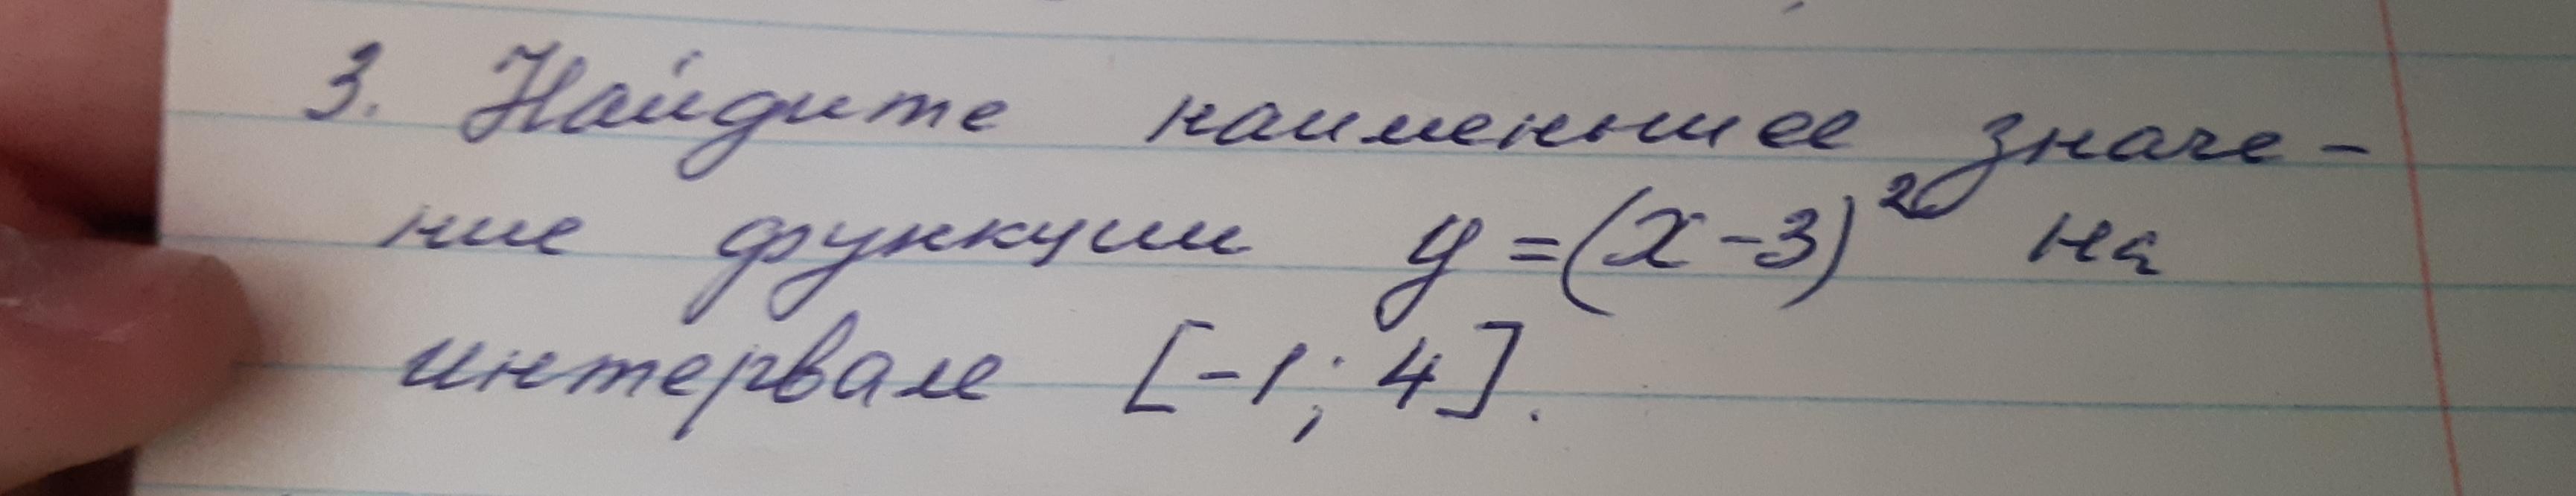 3. Найдите наименьшее значе-
ние функции y=(x-3)² на
интервале [-1; 4].